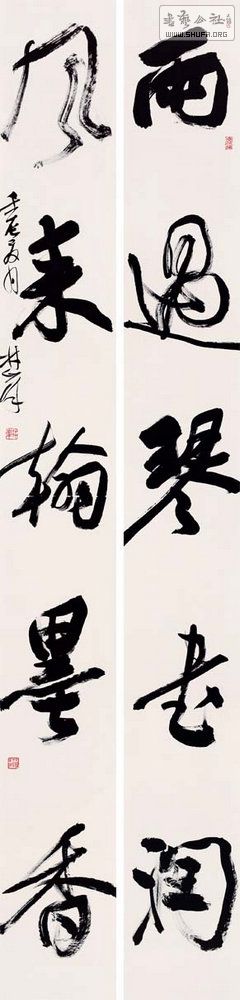 雨過琴书润
风来翰墨香
壬辰夏月
书艺公社
WWW.SHUFA.ORG